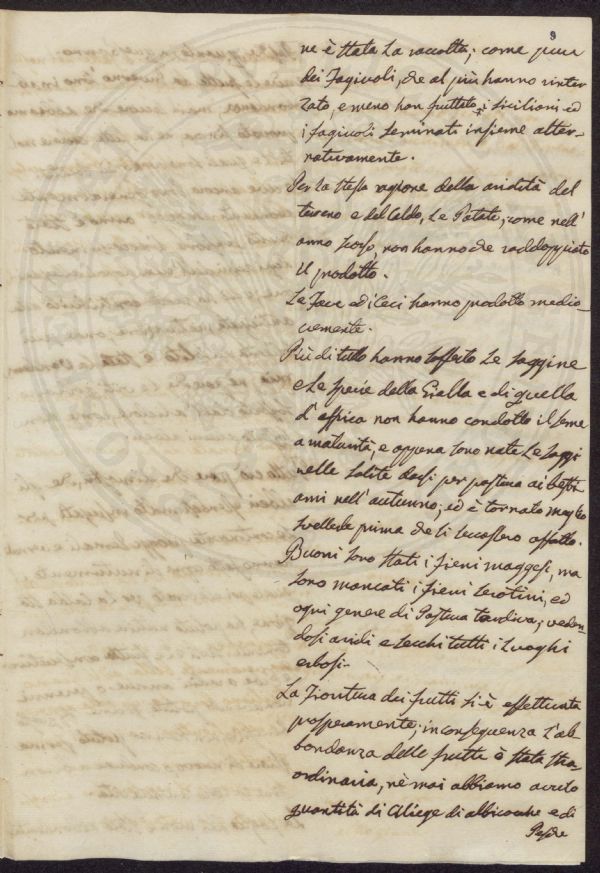 9
ne è stata la raccolta; come pure
dei Fagiuoli, che al più hanno rinter
zato, e meno han fruttato i siciliani ed
i fagiuoli seminati insieme alter-
nativamente.
Per la stessa ragione della aridità del
terreno e del Caldo, Le Patate, come nell'
anno scorso, non hanno che raddoppiato
il prodotto.
Le Fave ed i Ceci hanno prodotto medio-
cremente.
Più di tutto hanno sofferto Le saggine
e Le specie della Gialla e di quella
d'affrica non hanno condotto il seme
a maturità, e appena sono nate Le saggi
nelle solite darsi per pastura ai besti
ami nell'autunno; ed è tornato meglio
svellerle prima che si seccassero affatto.
Buoni sono stati i fieni maggesi, ma
sono mancati i fieni serotini, ed
ogni genere di Pastura tardiva; veden-
dosi aridi e secchi tutti i Luoghi
erbosi.
La Fioritura dei frutti si è effettuata
prosperamente; in conseguenza l'ab
bondanza delle frutte è stata stra-
ordinaria, nè mai abbiamo avuto
quantità di Ciliege di albicocche e di
Pesche